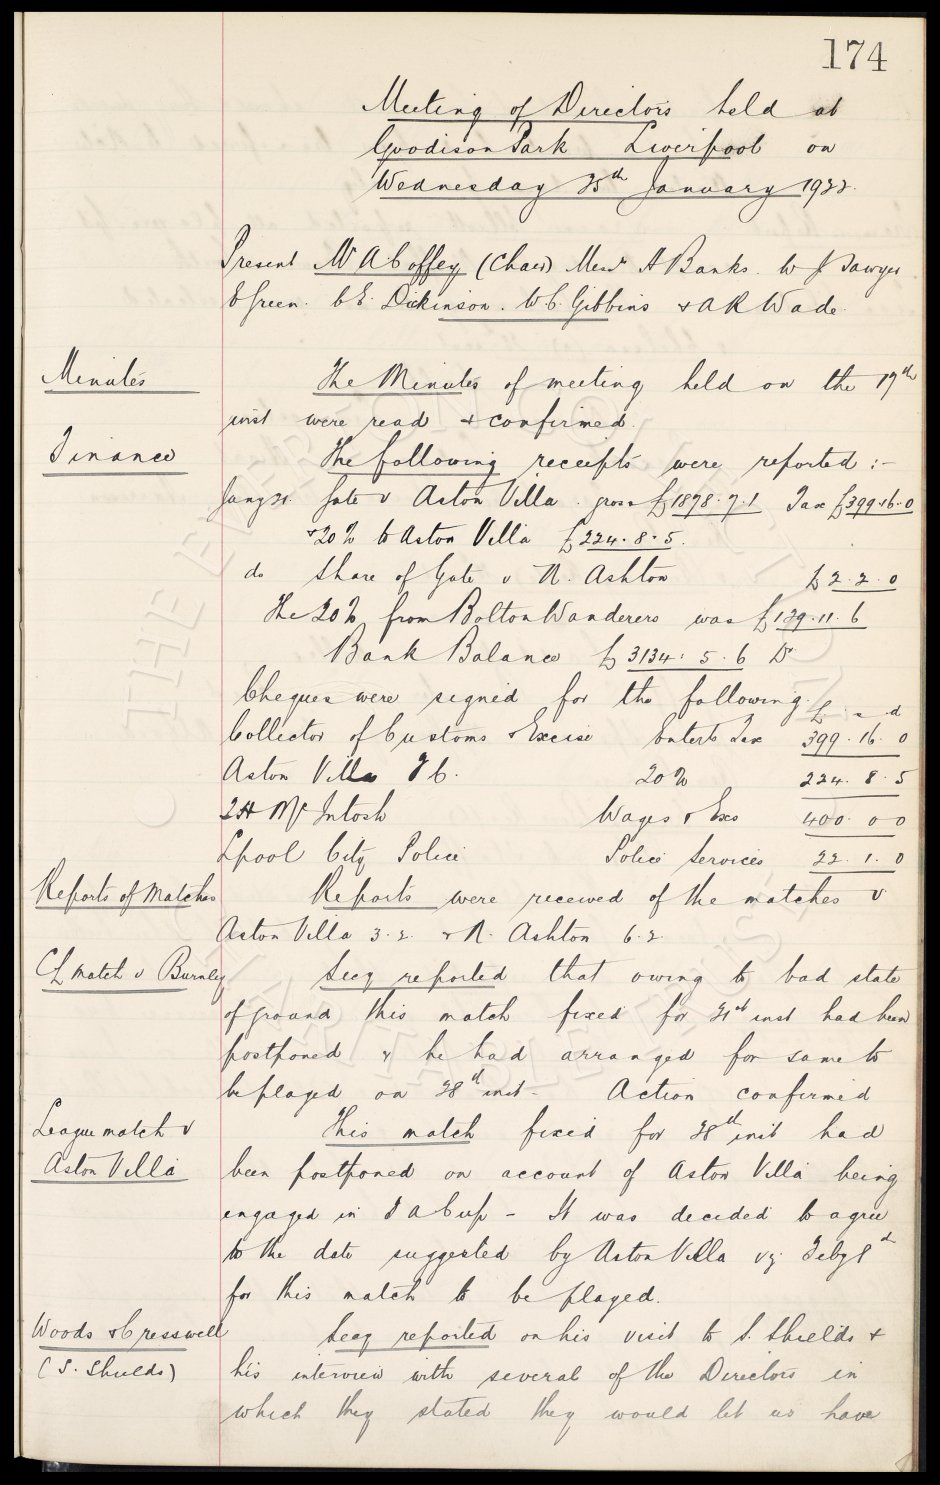 174
Meeting of Directors held at
Goodison Park Liverpool on
Wednesday 25th January 1922.
Present Mr A Coffey (Chair) Messrs A Banks. W J Sawyer
E Green. C E. Dickinson. W C. Gibbins & A R Wade.
Minutes
The Minutes of meeting held on the 17th
inst were read & confirmed.
Finance
The following receipts were reported :-
Jany 21. Gate v Aston Villa. gross £1878.7.1 Tax £399.16.0
& 20% to Aston Villa £224.8.5.
do Share of Gate v N. Ashton £2.2.0
The 20% from Bolton Wanderers was £129.11.6
Bank Balance £3134.5.6 Dr
Cheques were signed for the following.
£ s d
Collector of Customs & Excise Enterts Tax 399.16.0
Aston Villa F C. 20% 224.8.5
McIntosh Wages & Exs 400.0 0
Lpool City Police Police Services 22.1.0
Reports of Matches
Reports were received of the matches v
Aston Villa 3.2. & N. Ashton 6.2
CL match v Burnley
Secy reported that owing to bad state
of ground this match fixed for 21st inst had been
postponed & he had arranged for same to
be played on 28th inst - Action confirmed
League match v
Aston Villa
This match fixed for 28th inst had
been postponed on account of Aston Villa being
engaged in F A Cup - It was decided to agree
to the date suggested by Aston Villa vz. Feby
for this match to be played.
Woods & Cresswell
(S. Shields)
Secy reported on his visit to S. Shields &
his interview with several of the Directors in
which they stated they would let us have